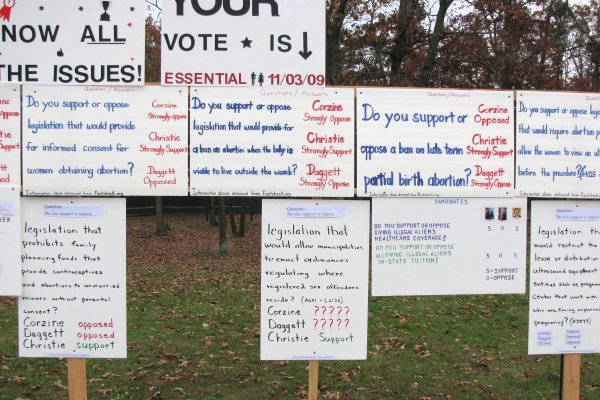 NOW ALL
THE ISSUES!
YOUR
VOTE ★ IS ↓
ESSENTIAL 11/03/09
Questions / Answers
Do you support or oppose
legislation that would provide
for informed consent for
women obtaining abortion?
Corzine
Strongly oppose
Christie
Strongly Support
Daggett
Opposed
Information above obtained from
Questions / Answers
Do you support or oppose
legislation that would provide for
a ban on abortion when the baby is
viable to live outside the womb?
Corzine
Strongly Oppose
Christie
Strongly Support
Daggett
Strongly Oppose
Information above obtained from
Questions / Answers
Do you support or
oppose a ban on late term
partial birth abortion?
Corzine
Opposed
Christie
Strongly Support
Daggett
Strongly Oppose
Information above obtained from
Questions / Answers
Do you support or oppose
that would require abortion
allow the woman to view an
before the procedure?
Question:
Do you support or oppose
legislation that
prohibits family
planning funds that
provide contraceptives
and abortions to unmarried
minors without parental
consent?
Corzine opposed
Daggett opposed
Christie support
Question:
Do you support or oppose
legislation that
would allow municipalities
to enact ordinances
regulating where
registered sex offenders
reside?
Corzine ?????
Daggett ?????
Christie Support
CANDIDATES
DO YOU SUPPORT OR OPPOSE
GIVING ILLEGAL ALIENS
HEALTHCARE COVERAGE? S O S
DO YOU SUPPORT OR OPPOSE
ALLOWING ILLEGAL ALIENS
IN-STATE TUITION? S O S
S = SUPPORT
O = OPPOSE
Question:
Do you support or oppose
legislation that
would restrict the
lease or distribution
ultrasound equipment
entities such as pregnancy
center that work with
who are facing
pregnancy?